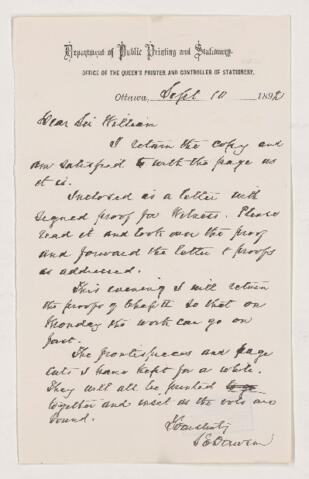 Department of Public Printing and Stationery.
OFFICE OF THE QUEEN'S PRINTER AND CONTROLLER OF STATIONERY,
Ottawa, Sept 10 1892
Dear Sir William
I return the copy and
am satisfied with the page as
it is.
Inclosed is a letter with
signed proof for . Please
read it and look over the proof
and forward the letter & proofs
as addressed.
This evening I will return
the proofs of Chap II so that on
Monday the work can go on
fast.
The frontispieces and page
cuts I have kept for a while.
They will all be printed
together and inset as the vols are
bound.
S E Dawson